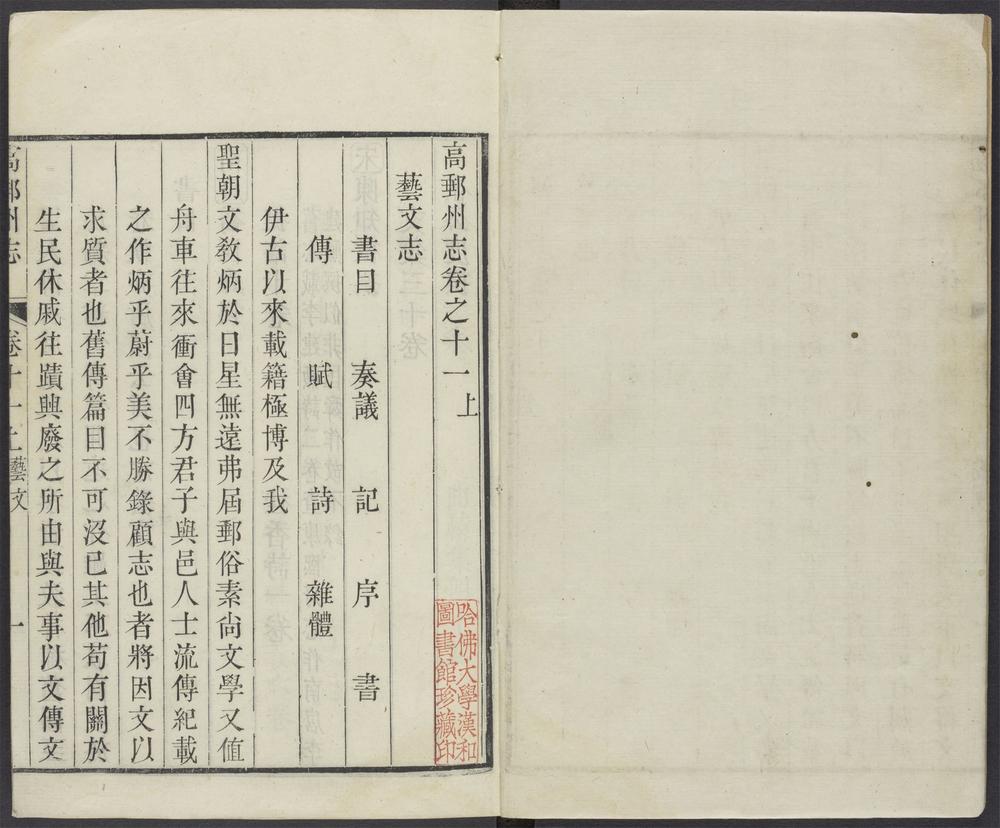 高郵州志卷之十一上
藝文志
書目 奏議 記 序 書
傳 賦 詩 雜體
伊古以來載籍極博及我
聖朝文敎炳於日星無遠弗屆郵俗素尙文學又值
舟車往來衝會四方君子與邑人士流傳紀載
之作炳乎蔚乎美不勝錄顧志也者將因文以
求質者也舊傳篇目不可沒已其他苟有關於
生民休戚往蹟興廢之所由與夫事以文傳文
高郵州志 卷十一上藝文 一
哈佛大學漢和
圖書館珍藏印